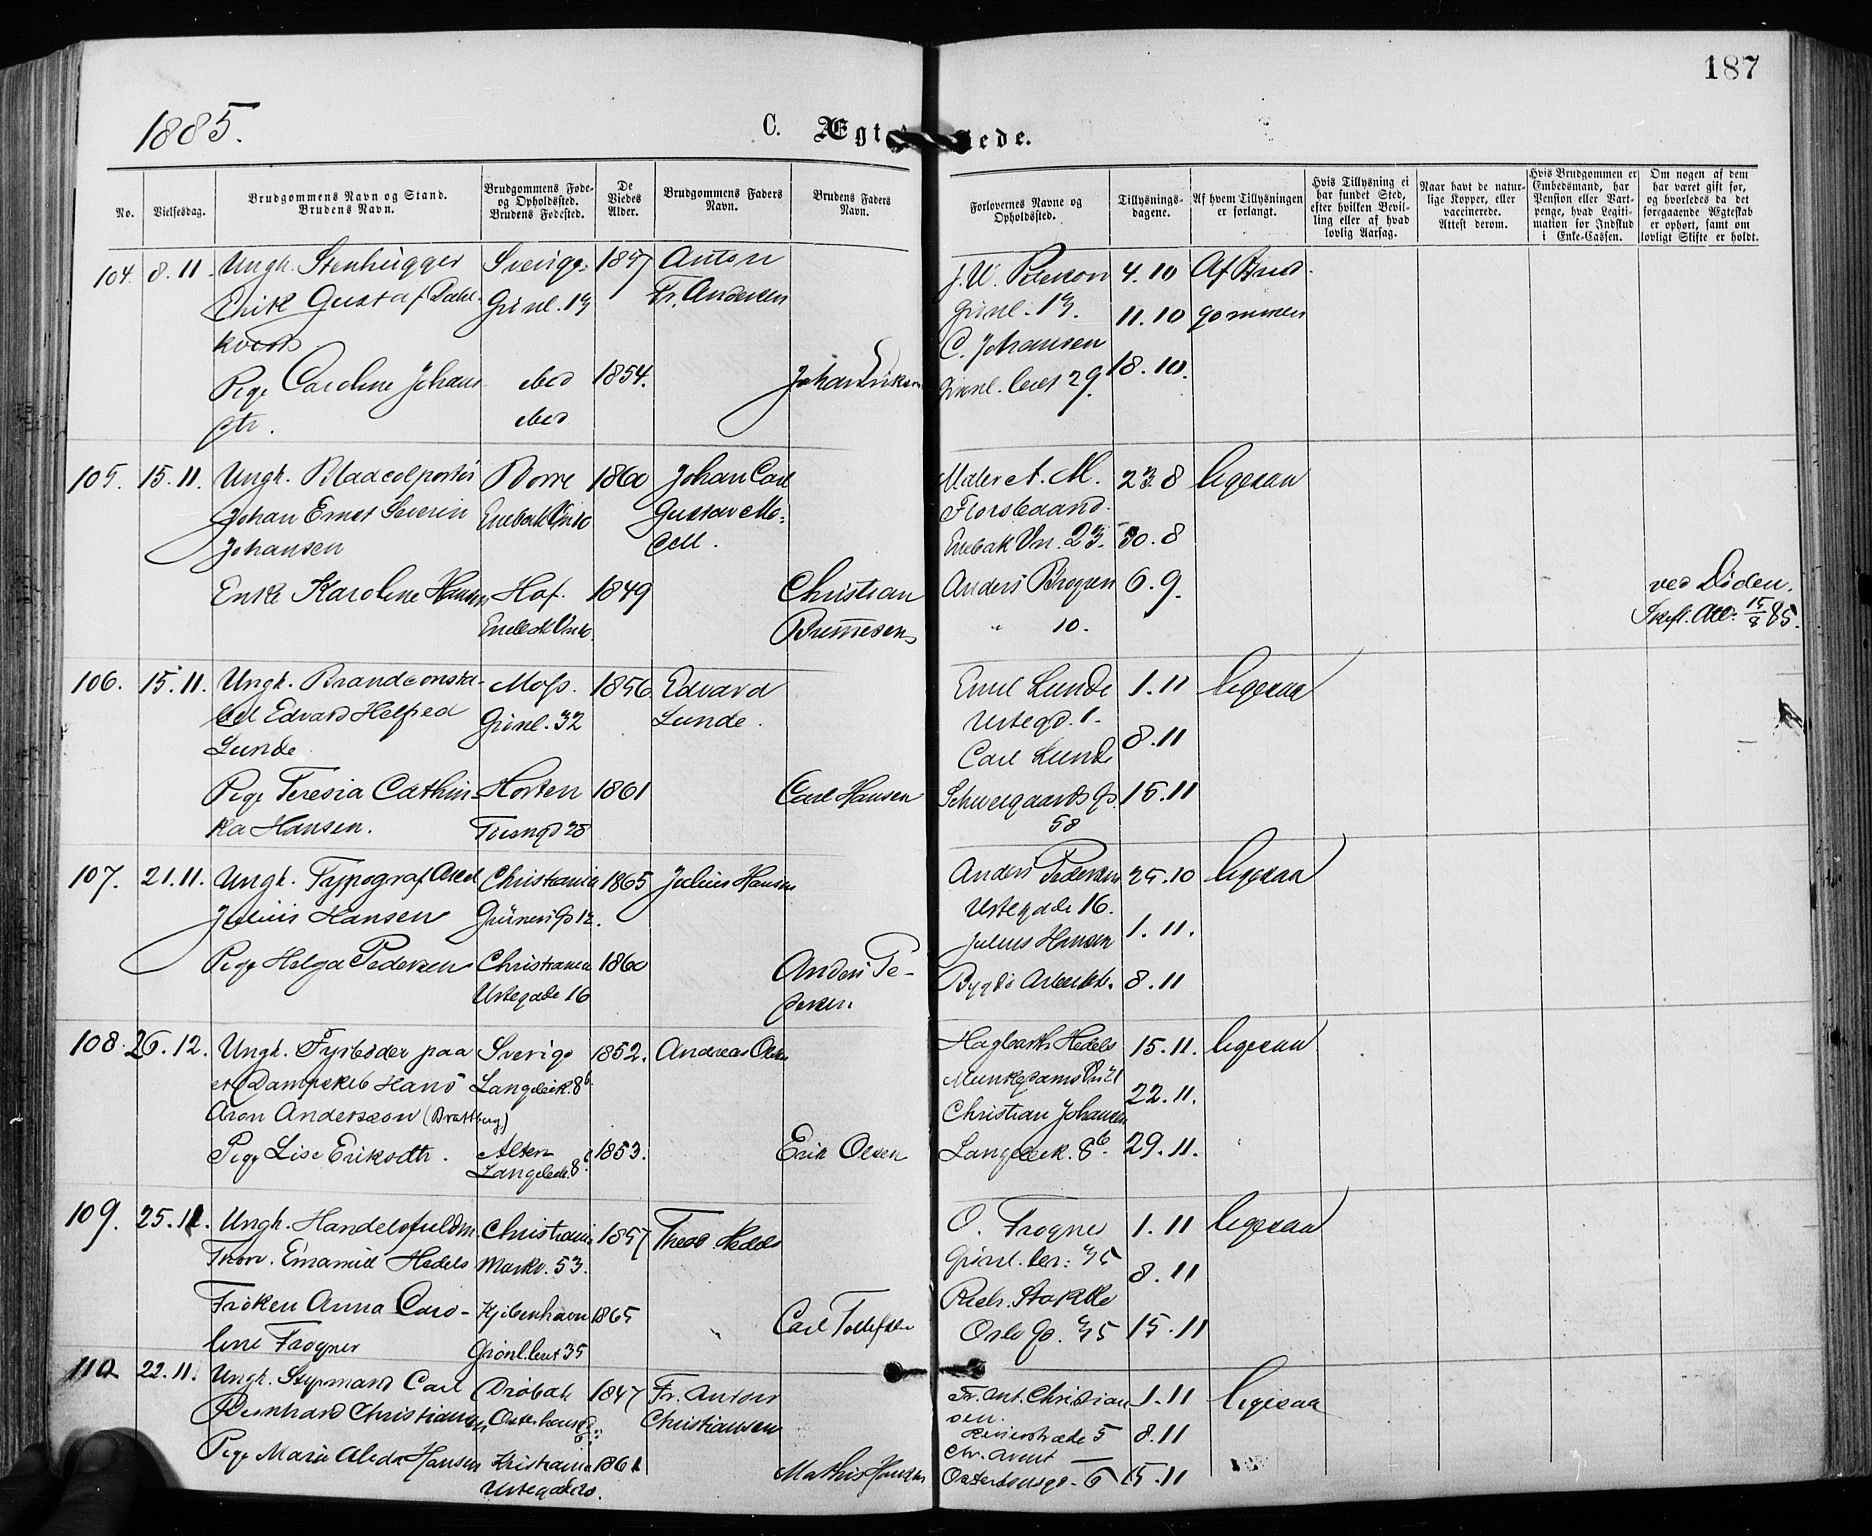 187
1885.
C. Ægt
ede.
No.
Vielsesdag.
Brudgommens Navn og Stand.
Brudens Navn.
Brudgommens Føde-
og Opholdssted.
Brudens Fødested.
De
Viedes
Alder.
Brudgommens Faders
Navn.
Brudens Faders
Navn.
Forlovernes Navne og
Opholdssted.
Tillysnings-
dagene.
Af hvem Tillysningen
er forlangt.
Hvis Tillysning ei
har fundet Sted,
efter hvilken Bevil-
ling eller af hvad
lovlig Aarsag.
Naar havt de natur-
lige Kopper, eller
vaccinerede.
Attest derom.
Hvis Brudgommen er
Embedsmand, har
Pension eller Vart-
penge, hvad Legiti-
mation for Indskud
i Enke-Cassen.
Om nogen af dem
har været gift før,
og hvorledes da det
foregaaende Ægteskab
er ophørt, samt om
lovligt Skifte er holdt.
104. 8.11. Ungk. Stenhugger Sverige. 1857 Anton 4.10 Af Brud-
Erik Gustaf Dahl- Grønl. 13 Fr. Andersen Grønl. 13. 11.10 gommen
C. Johansen
Pige Caroline Johans ibid 1854. Johan Eriksen Grønl. leret 29. 18.10.
dtr. ibid
105. 15.11. Ungk. Bladcolportør Borre 1860 Johan Carl Maler A. M. 23.8 ligesaa
Johan Ernst Severin Gustav
Johansen Enebak Vn. 23. 30.8
Enke Karoline Hansen Hof. 1849 Christian Anders 6.9. ved Døden.
" 10. Skft. Att. 15/8 85.
106. 15.11. Ungk. Brandconsta- Moss. 1856 Edvard Emil Lunde 1.11 ligesaa
bel Edvard Helfred Grønl. 32 Lunde. Urtegd. 1.
Lunde Carl Lunde 8.11
Pige Teresia Cathin- Horten 1861 Carl Hansen Schweigaards Gd. 15.11
ka Hansen. 28 58
107. 21.11. Ungk. Typograf Axel Christiania 1865 Julius Hansen Anders Pedersen 25.10 ligesaa
Julius Hansen Grüners Gd 12. Urtegade 16.
Julius Hansen 1.11.
Pige Helga Pedersen Christiania 1860 Anders Pe- Bygdø 8.11
Urtegade 16 dersen
108. 26.12. Ungk. Fyrbøder paa Sverige 1852. Andreas Olsen Hagbarth Hedels 15.11. ligesaa
Dampskib Langeleik. 8b Munkedams Vn 21
Aron Andersson (Brattberg) Christian Johansen 22.11.
Pige Lise Eriksdtr. Alten 1853. Erik Olsen Langeleik. 8b. 29.11.
109. 25.11. Ungk. Handelsfuldm. Christiania 1857 Theod. Hedels O. Frogner 1.11 ligesaa
Thorv. Emanuel Hedels Markv. 53. Grønl. ler. 35 8.11
Frøken Anna Caro- Kjøbenhavn 1865 Carl
line Frogner Grønl. leret 35 Oslo Gd. 35 15.11
110. 22.11. Ungk. Styrmand Carl Drøbak 1847 Fr. Anton Fr. Ant. Christian 1.11 ligesaa
Bernhard Christiansen Christiansen sen.
5 8.11
Pige Marie Alida Hansen Kristiania 1861 Mathis Hansen 6 15.11